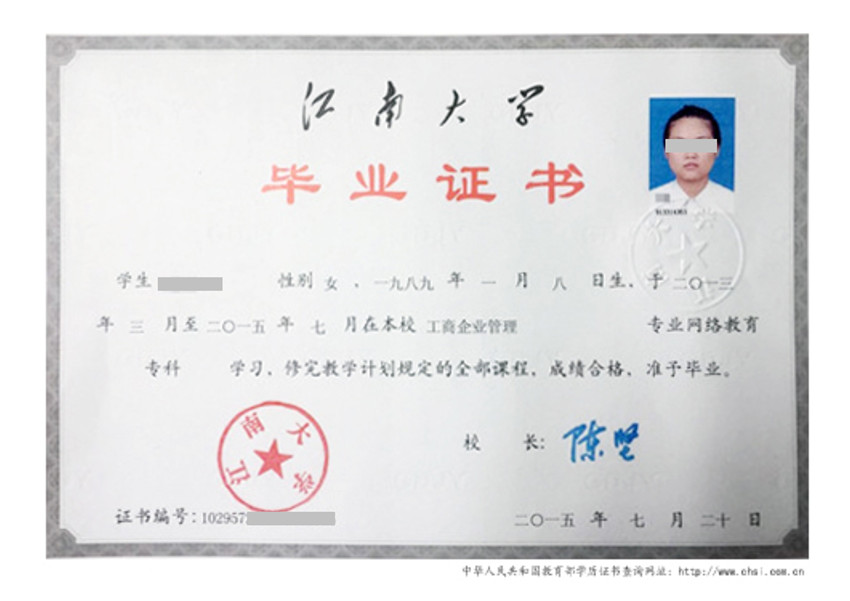 江南大学
毕业证书
学生 性别 女 、一九八九 年 一 月 八 日生、于 二〇一三
年 三 月至 二〇一五 年 七 月在本校 工商企业管理 专业网络教育
专科 学习、修完教学计划规定的全部课程、成绩合格、准予毕业。
江南大学
校 长: 陈坚
证书编号:102957
二〇一五 年 七 月 二十 日
中华人民共和国教育部学历证书查询网址: http://www.chsi.com.cn